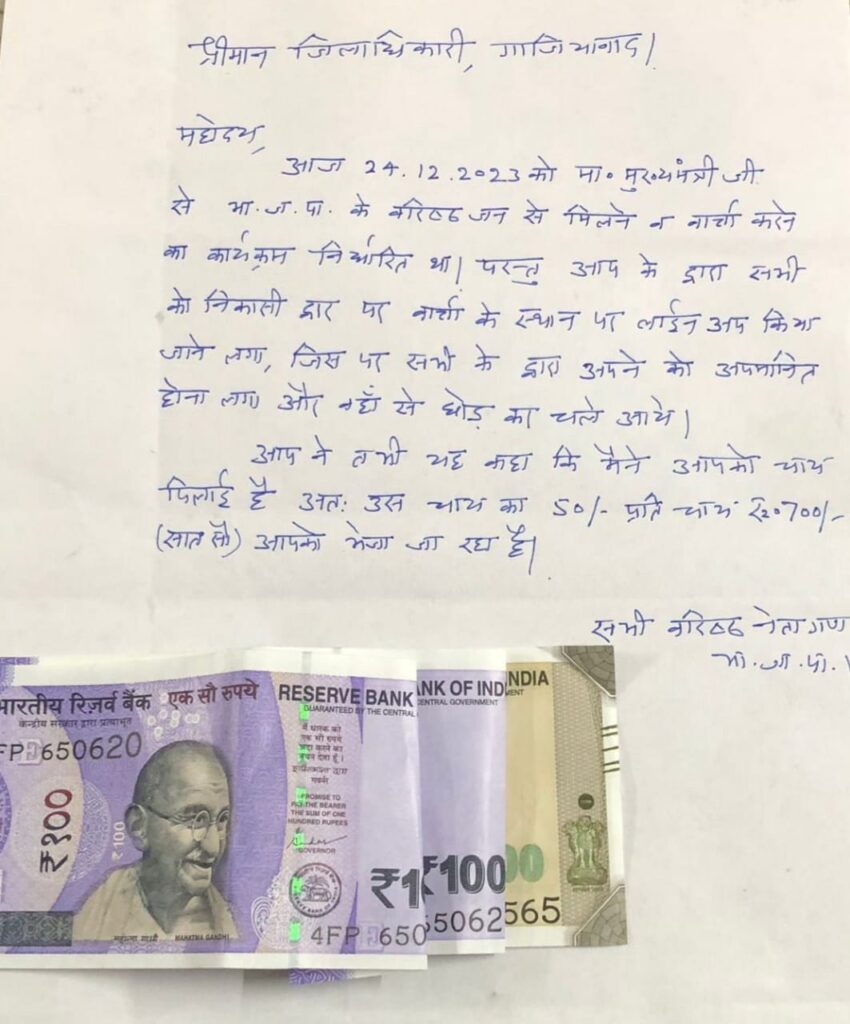 श्रीमान जिलाधिकारी, गाजियाबाद।
महोदय,
आज 24.12.2023 को मा० मुख्यमंत्री जी
से भा.ज.पा. के वरिष्ठ जन से मिलने व वार्ता करने
का कार्यक्रम निर्धारित था। परन्तु आप के द्वारा सभी
को निकासी द्वार पर वार्ता के स्थान पर लाईन अप किया
जाने लगा, जिस पर सभी के द्वारा अपने को अपमानित
होना लगा और वहाँ से छोड़ का चले आये।
आप ने तभी यह कहा कि मैने आपको चाय
पिलाई है अतः उस चाय का 50/- प्रति चाय रु० 700/-
(सात सौ) आपको भेजा जा रहा है।
सभी वरिष्ठ नेतागण
भा.ज.पा.।
भारतीय रिज़र्व बैंक एक सौ रुपये RESERVE BANK ANK OF IND INDIA
केन्द्रीय सरकार द्वारा प्रत्याभूत GUARANTEED BY THE CENTRAL CENTRAL GOVERNMENT MENT
FP 650620
₹१00
₹100
मैं धारक को
एक सौ रुपये
अदा करने का
वचन देता हूँ।
I PROMISE TO
PAY THE BEARER
THE SUM OF ONE
HUNDRED RUPEES
GOVERNOR
₹1 ₹100 00
महात्मा गांधी MAHATMA GANDHI
4FP 650 65062 565